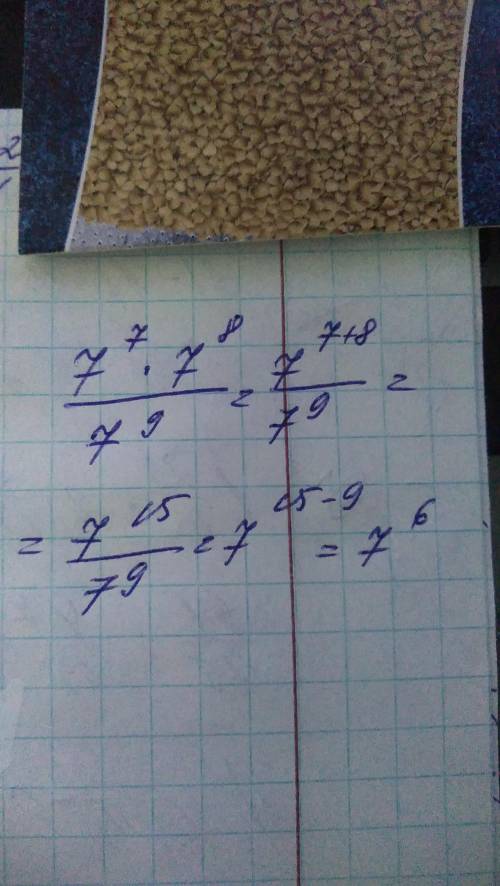 2
7^7 · 7^8 / 7^9 = 7^{7+8} / 7^9 =
= 7^{15} / 7^9 = 7^{15-9} = 7^6